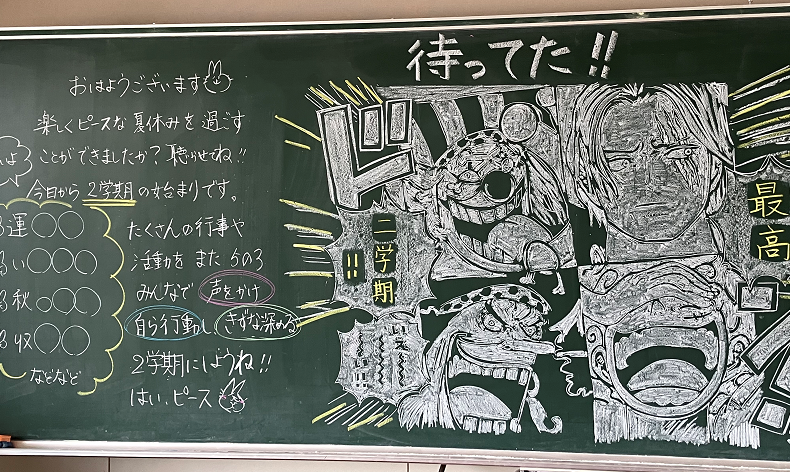 待ってた!!
おはようございます
楽しくピースな夏休みを過ごす
ことができましたか?聴かせてね!!
今日から2学期の始まりです。
たくさんの行事や
活動をまたうのろ
みんなで声をかけ
自ら行動しきずな深める
2学期にしようね!!
はい、ピース
運〇〇
い〇〇〇
秋〇〇〇
収〇〇
などなど
ド
二学期
!!
最高